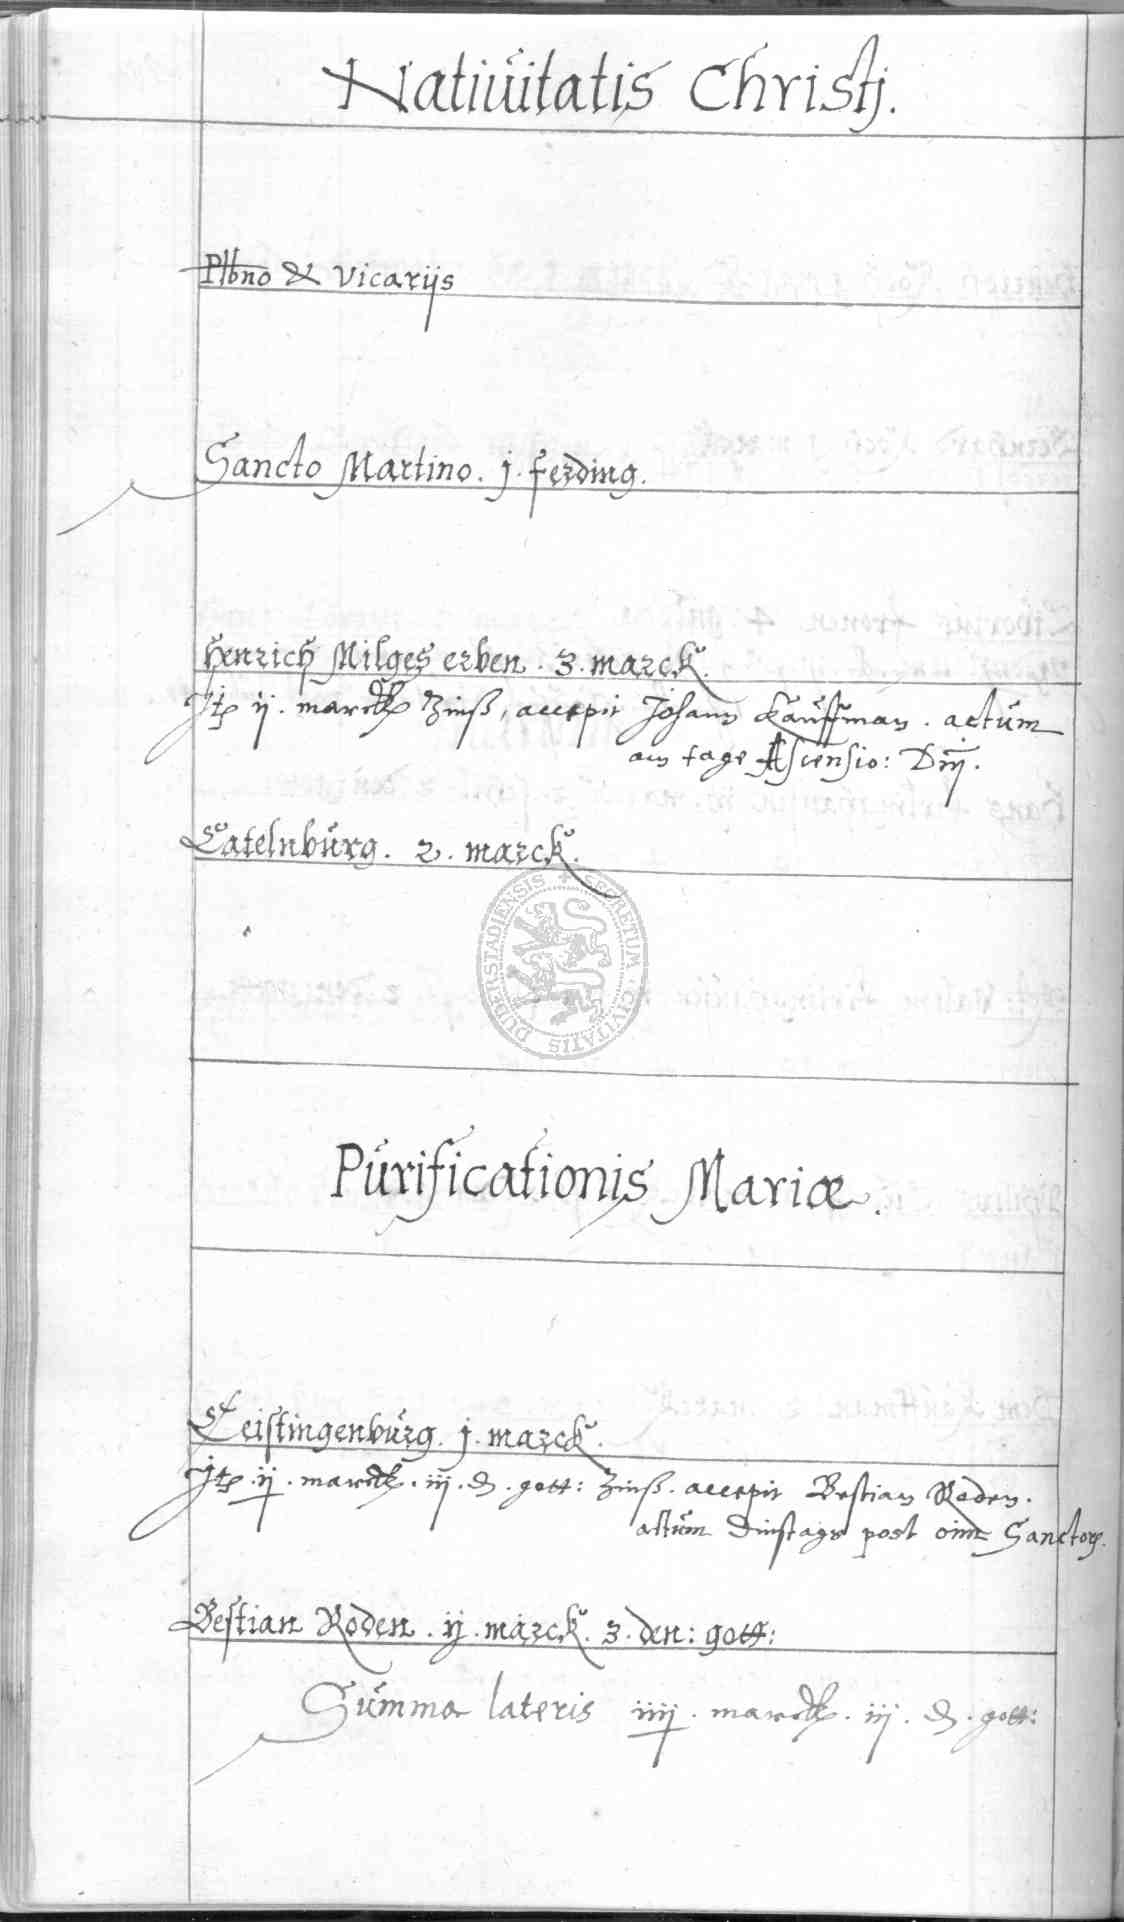 Natiuitatis Christj.
Plbno & vicarijs
Sancto Martino. j. ferding.
Henrich Milges erben. 3. marck.
Jtz ij. marck Zinß, accepit Johann Kauffman. actum
am tage Ascensio: Dnj.
Catelnburg. 2. marck.
DUDERSTADIENSIS SECRETUM CIVITATIS
Purificationis Mariæ.
Leistingenburg. j. marck.
Jtz ij. marck. iij. d. gott: Zinß. accepit Bestian Roden.
actum Dinstags post oim Sanctor.
Bestian Roden. ij. marck. 3. den: gott:
Summa lateris iiij. marck. iij. d. gott: